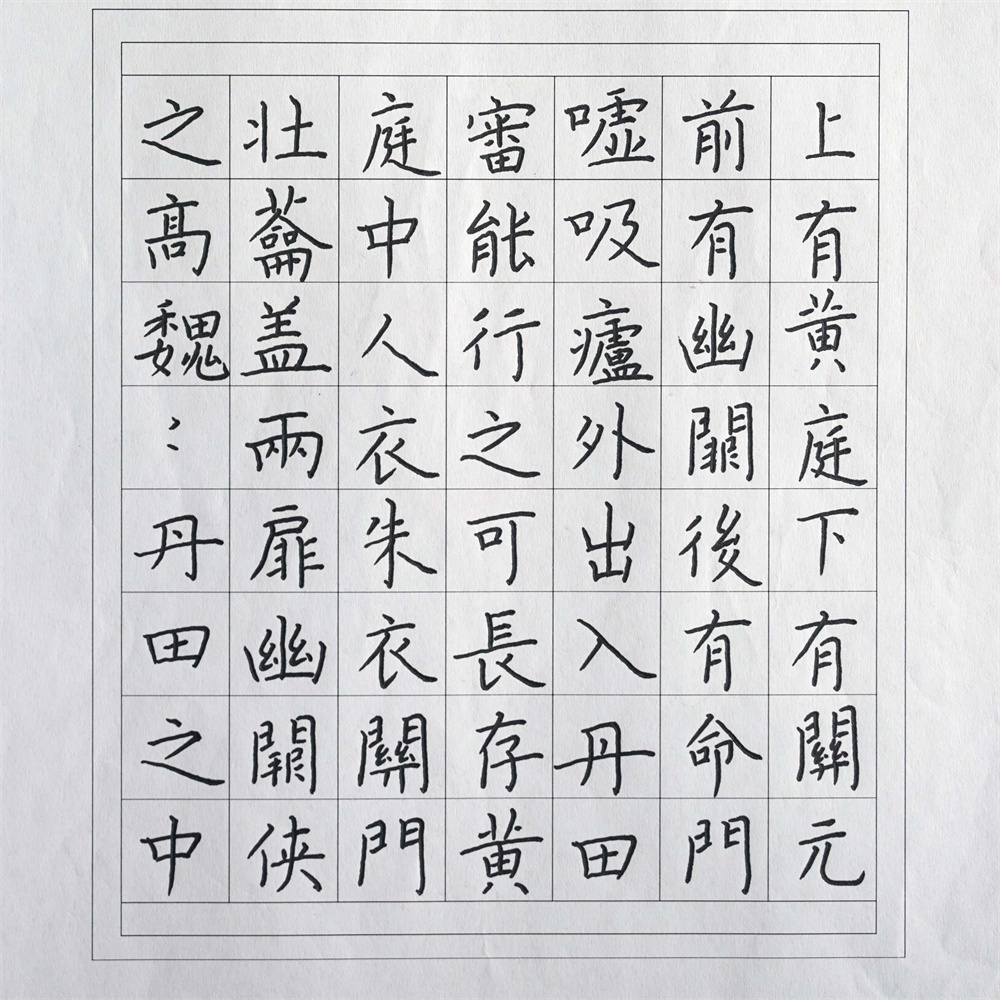 上有黃庭下有關元
前有幽闕後有命門
噓吸廬外出入丹田
審能行之可長存黃
庭中人衣朱衣關門
壮蘥盖兩扉幽闕俠
之高魏〻丹田之中